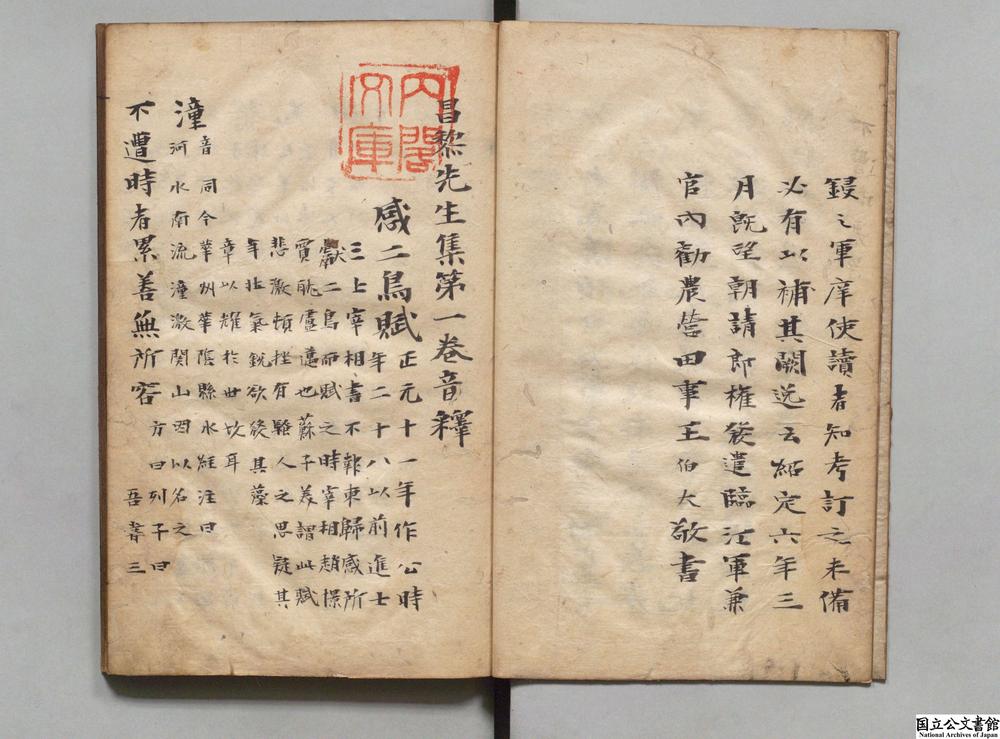 鋟之軍庠使讀者知考訂之未備
必有以補其闕逸云紹定六年三
月旣望朝請郎權發遣臨江軍兼
官內勸農營田事王伯大敬書
昌黎先生集第一卷音釋
感二鳥賦
正元十一年作公時
年二十八以前進士
三上宰相書不報東歸感所
獻二鳥而賦之時宰相趙憬
賈耽盧邁也蘇子美謂此賦
悲激頓挫有騷人之思疑其
年壯氣銳欲發其藻
章以耀於世坎耳
潼
音同今華州華陰縣水經注曰
河水南流潼激関山因以名之
不遭時者累善無所容
方曰列子曰
吾晝三
内閣
文庫
国立公文書館
National Archives of Japan